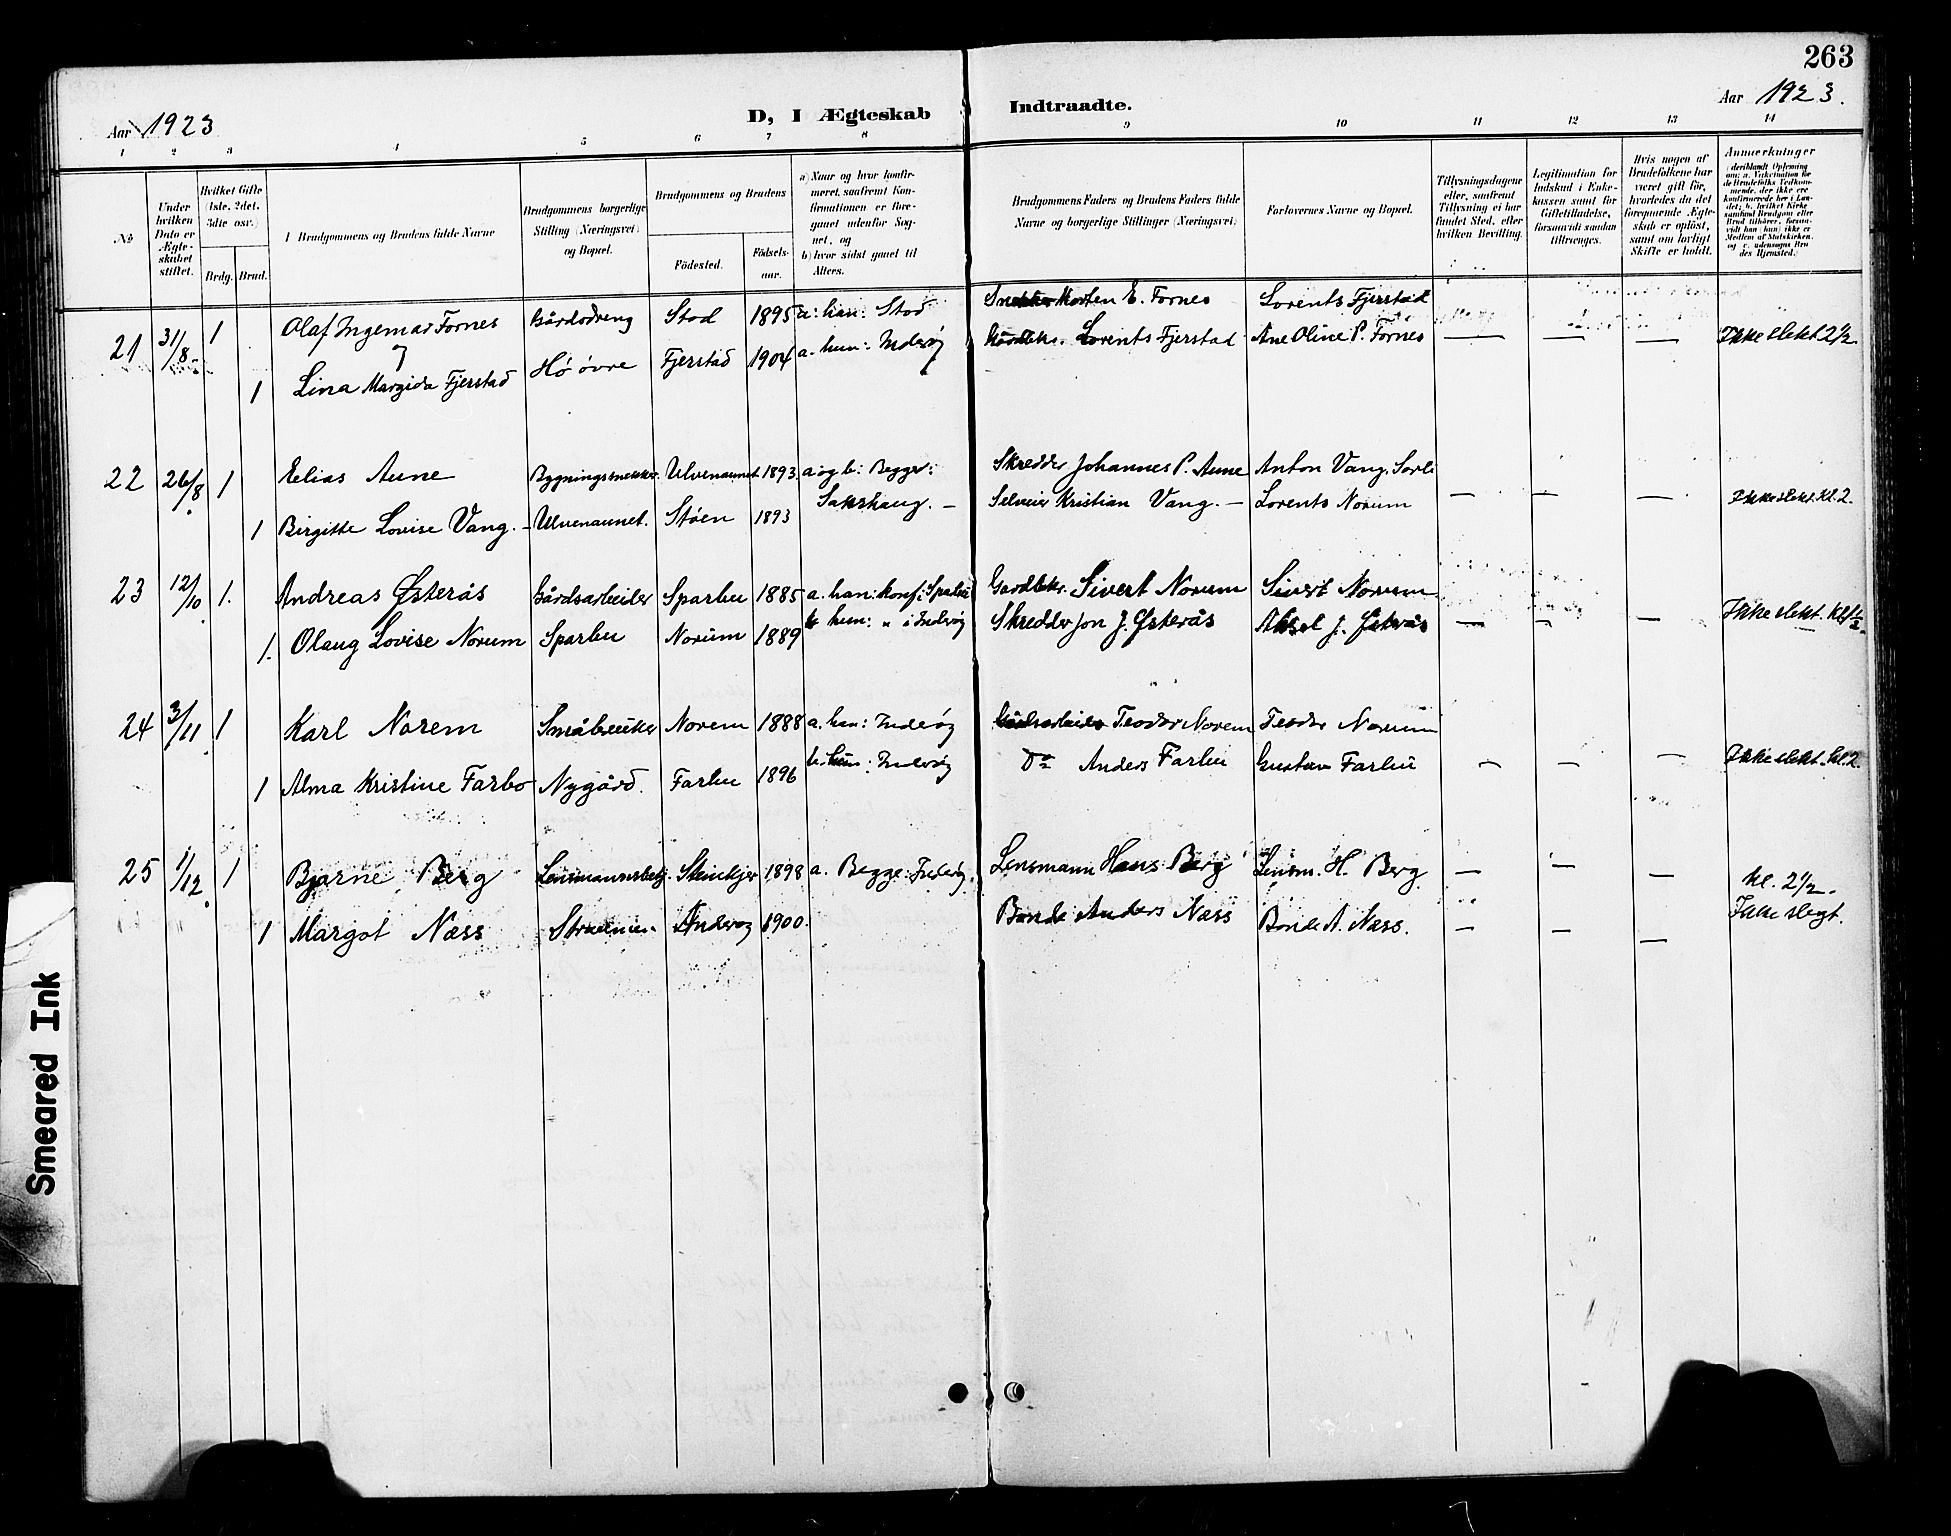 263
Aar 1923
D, I Ægteskab
Indtraadte.
Aar 1923.
1 2 3 4 5 6 7 8 9 10 11 12 13 14
No
Under hvilken Dato er Ægteskabet stiftet.
Hvilket Gifte (1ste, 2det, 3dte osv.)
Brdg. Brud.
Brudgommens og Brudens fulde Navne
Brudgommens borgerlige Stilling (Næringsvei) og Bopæl.
Brudgommens og Brudens
Födested.
Födselsaar.
a) Naar og hvor konfirmeret, saafremt Konfirmationen er foregaaet udenfor Sognet, og
b) hvor sidst gaaet til Alters.
Brudgommens Faders og Brudens Faders fulde Navne og borgerlige Stillinger (Næringsvei)
Forlovernes Navne og Bopæl.
Tillysningsdagene eller, saafremt Tillysning ei har fundet Sted, efter hvilken Bevilling.
Legitimation for Indskud i Enkekassen samt for Giftetilladelse, forsaavidt saadan tiltrænges.
Hvis nogen af Brudefolkene har været gift för, hvorledes da det foregaaende Ægteskab er oplöst, samt om lovligt Skifte er holdt.
Anmerkninger
21 31/8 1 Olaf Ingemar Fornes Gårdsdreng Stod 1895 a: han: Stod Morten E. Fornes Lorents Fjerstad
Lorents Fjerstad Ane Oline P. Fornes — — — Ikke slekt 2½
1 Lina Margida Fjerstad Hø øvre Fjerstad 1904 a. hun: Inderøy
22 26/8 1 Elias Aune Bygningssnekker Ulvenaunet 1893 a og b: Begge: Skredder Johannes P. Aune Anton Vang,
1 Birgitte Lovise Vang. Ulvenaunet. Støen 1893 Sakshaug. — Selveier Kristian Vang. — Lorents Norum — — — Ikke slekt. Kl. 2.
23 12/10 1. Andreas Østerås Gårdsarbeider Sparbu 1885 a. han: konf: Sparbu Gardbkr. Sivert Norum Sivert Norum
1. Olaug Lovise Norum Sparbu Norum 1889 hun: " i Inderøy Skredder Jon J. Østerås Aksel J. Østerås — — — Ikke slekt.
24 3/11 1 Karl Norem Småbruker Norem 1888 a. han: Inderøy Gårdsarbeider Teodor Norem Teodor Norum
1 Alma Kristine Farbo Nygård. Farbu 1896 b. hun: Inderøy Do Anders Farbu Gustav Farbu — — — Ikke slekt. kl. 2.
25 1/12 1 Bjarne Berg Steinkjer 1898 a. Begge: Inderøy. Lensmann Hans Berg Lensm. H. Berg — — — kl. 2½.
1 Margot Næss Inderøy 1900. Bonde Anders Næss Bonde A. Næss. — — — Ikke slegt.
Smeared Ink